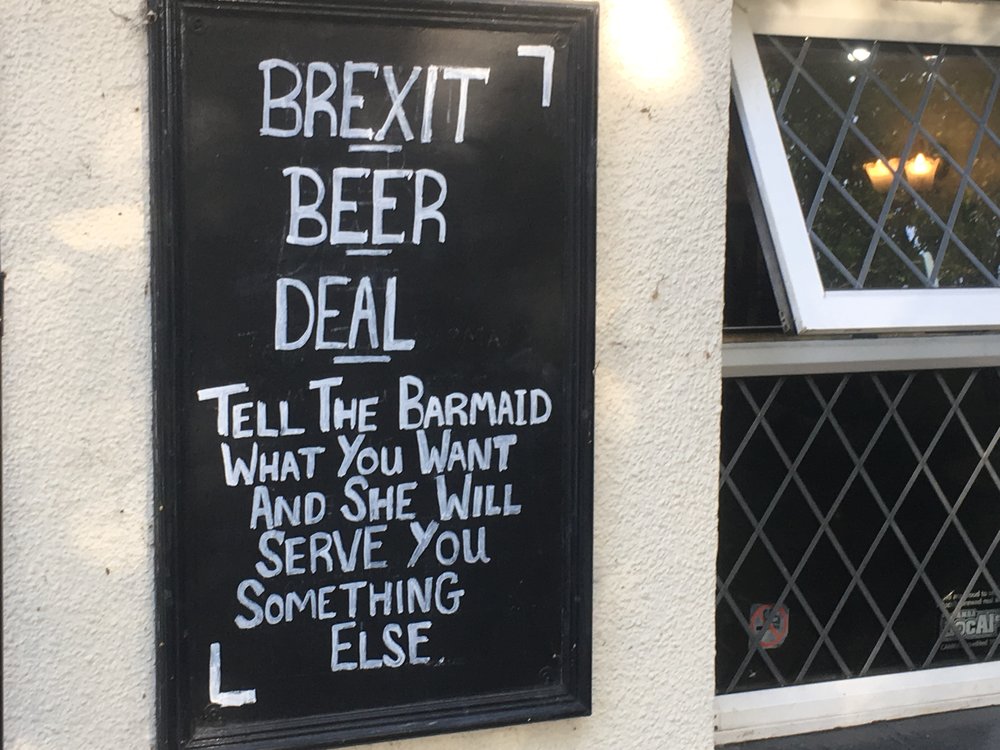 BREXIT
BEER
DEAL
TELL THE BARMAID
WHAT YOU WANT
AND SHE WILL
SERVE YOU
SOMETHING
ELSE.
LocAl